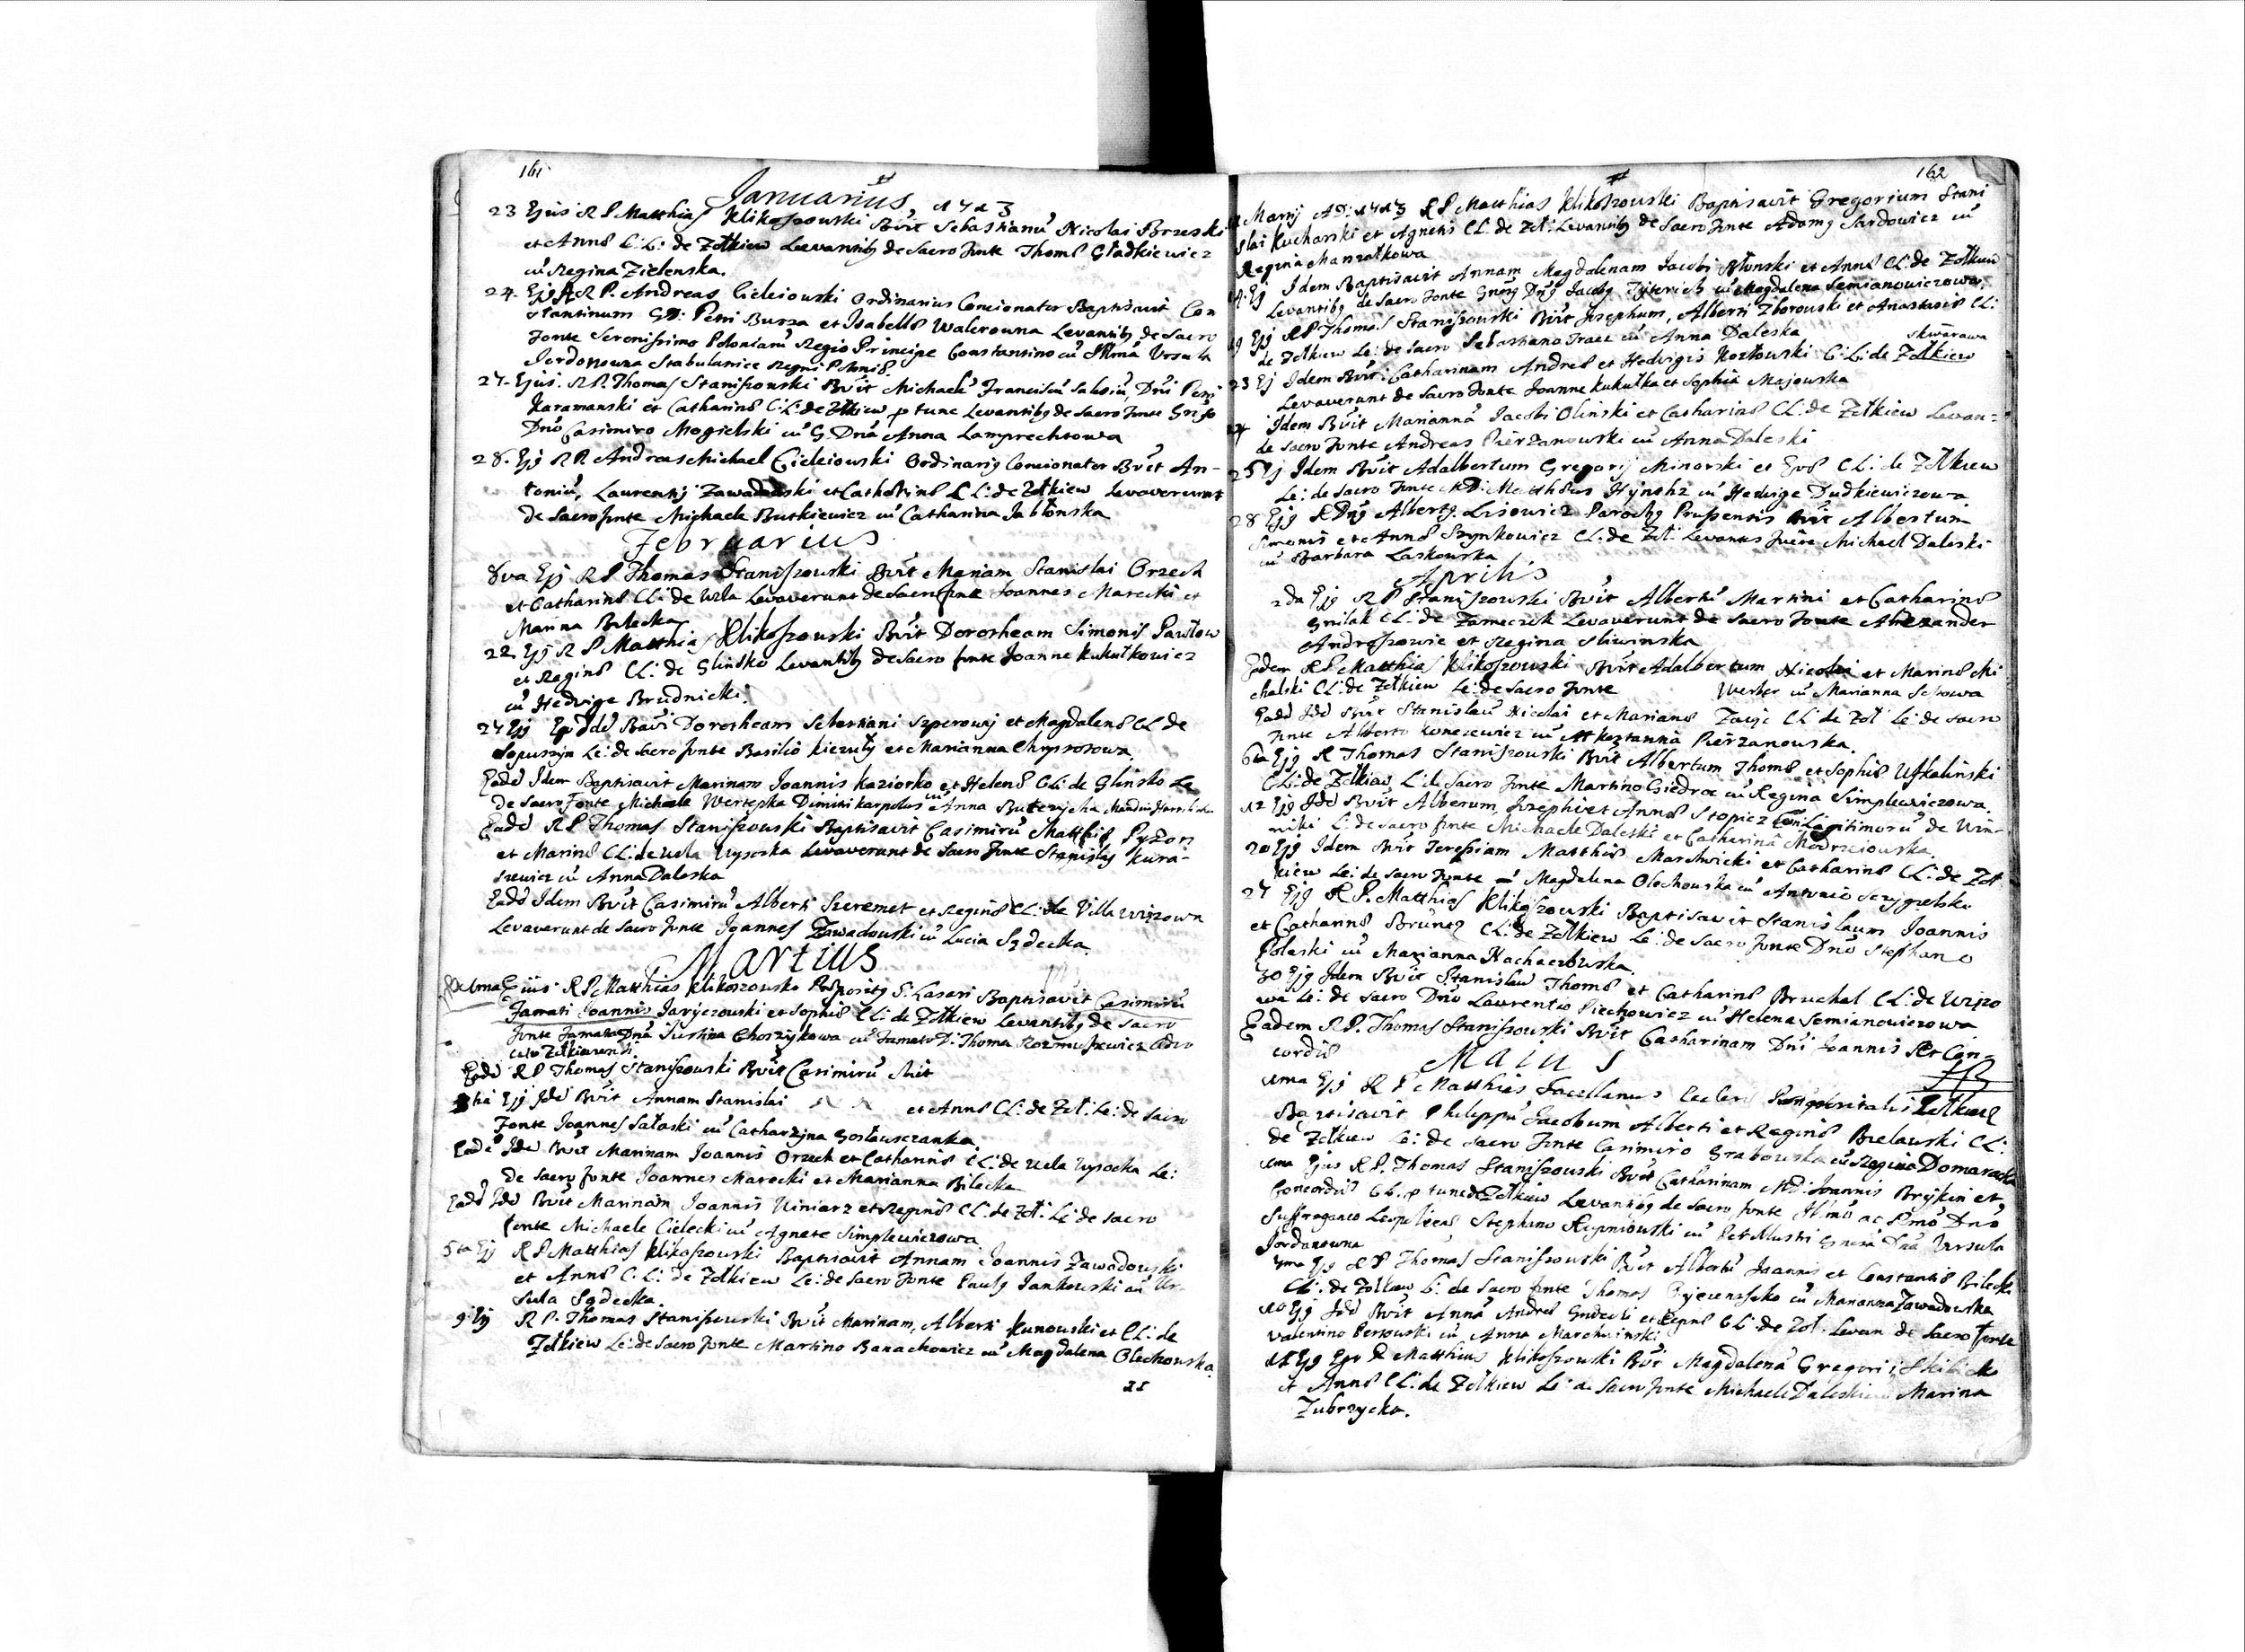 161
Januarius, 1713
23 Ejus R P Matthias Klikoszowski Bvit Sebastianu Nicolai Brzeski
et Annæ C.L: de Zołkiew Levantibꝫ de Sacro Fonte Thoma Gładkiewicz
cu Regina Zielenska.
24. Ejꝫ R P. Andreas Cieleiowski Ordinarius Concionator Baptisavit Con
stantinum GD: Petri Burza et Isabellæ Walerowna Levantibꝫ de Sacro
Fonte Serenissimo Poloniaru Regio Principe Constantino cu Illma Ursula
Jordonowna Stabularice Regni Poloniæ.
27. Ejus. R P. Thomas Staniszowski Bvit Michaelu Franciscu Salesiu, Dni Petri
Karamanski et Catharinæ C:L: de Zołkiew p tunc Levantibꝫ de Sacro Fonte
Dno Casimiro Mogielski cu G. Dna Anna Lamprechtowa
28. Ejꝫ R P Andreas Michael Cieleiowski Ordinariꝫ Concionator Bvit An-
toniu, Laurentij Zawadzki et Catharinæ C L: de Zołkiew Levaverunt
de Sacro fonte Michaele Butkiewicz cu Catharina Jabłonska
Februarius
8va Ejꝫ R P Thomas Staniszowski Bvit Mariam Stanislai Orzech
et Catharinæ CL: de Wla Levaverunt de Sacro fonte Joannes Marecki et
Marina Bilecka
22 Ejꝫ R P Matthias Klikoszowski Bvit Dorotheam Simonis Pawłow
et Reginæ CL: de Glinsko Levantibꝫ de Sacro fonte Joanne Kukułkowicz
cu Hedvige Brudnicki.
24 Ejꝫ Bavi Dorotheam Sebastiani Szperowij et Magdalenæ CL de
Sopuszyn Le: de Sacro fonte Basilio Kiczuły et Marianna Chrystosowa.
Eadē Idem Baptisavit Marinam Joannis Kaziorko et Helenæ CL: de Glinsko Le
de Sacro Fonte Michaele Wertepka Dimitri Karpolus cu Anna Buterycha
Eadē R P. Thomas Staniszowski Baptisavit Casimiru Matthiæ Pyżon
et Marinæ CL: de Wla Wysocka Levaverunt de Sacro Fonte Stanislaꝫ Kura-
szewicz cu Anna Daleska
Eadē Idem Bvit Casimiru Alberti Szeremet et Reginæ CL: de Villa Wiązowa
Levaverunt de Sacro fonte Joannes Zawadowski cu Lucia Sądecka.
Martius
Ejus R P Matthias Klikoszowski Præposity S. Lazari Baptisavit Casimiru
Famati Joannis Jaryczowski et Sophiæ CL: de Zołkiew Levantibꝫ de Sacro
Fonte Famata Dna Justina Chorzykowa cu Famato D: Thoma Rozmusiewicz
Eadē R P Thomas Staniszowski Bvit Casimiru
3tia Ejꝫ Idē Bvit Annam Stanislai N N et Annæ CL: de Zoł: Le: de Sacro
Fonte Joannes Sałaski cu Catharzyna Gosławczanka
Eadē Idē Bvit Marinam Joannis Orzech et Catharinæ CL: de Wla Wysocka Le:
de Sacro fonte Joannes Marecki et Marianna Bilecka
Eadē Idē Bvit Marinam Joannis Winiarz et Reginæ CL: de Zoł: Le: de Sacro
fonte Michaele Cielecki cu Agnete Simplewiczowa
5ta Ejꝫ R P Matthias Klikoszowski Baptisavit Annam Joannis Zawadowski
et Annæ C.L: de Zołkiew Le: de Sacro Fonte Paulꝫ Jankowski cu Ur-
sula Sądecka.
9 Ejꝫ R P. Thomas Staniszowski Bvit Marinam, Alberti Kunowski et CL: de
Zołkiew Le: de Sacro fonte Martino Banachowicz cu Magdalena Olechowska.
21
162
Martij AD: 1713 R P Matthias Klikoszowski Baptisavit Gregorium Stani
slai Kucharski et Agnetis CL: de Zoł: Levantibꝫ de Sacro Fonte Adamꝫ Sardowicz cu
Regina Manzatkowa
Idem Baptisavit Annam Magdalenam Jacobi Błonski et Annæ CL: de Zołkiew
Levantibꝫ de Sacro Fonte Jacobꝫ Zyterich cu Magdalena Semianowiczowa.
19 Ejꝫ R P Thomas Staniszowski Bvit Josephum, Alberti Zborowski et Anastasiæ CL:
de Zołkiew Le: de Sacro Sebastiano Tracz cu Anna Daleska
Skwarawa
23 Ej Idem Bvit: Catharinam Andreæ et Hedvigis Kozłowski C:L: de Zołkiew
Levaverunt de Sacro Fonte Joanne Kukułka et Sophia Majewska
Idem Bvit Marianna Jacobi Olinski et Catharinæ CL: de Zołkiew Levan=
de Sacro Fonte Andreas Pierzanowski cu Anna Daleski
25 Ej Idem Bvit Adalbertum Gregorij Minorski et Evæ CL: de Zołkiew
Le: de Sacro Fonte D: Matthæus Hynchz cu Hedvige Dudkiewiczowa
28 Ejꝫ R Dnꝫ Albertꝫ. Lisowicz Parochꝫ Prussensis Bvit Albertum
Simonis et Annæ Szynkowicz CL: de Zoł: Levantes fuere Michael Daleski
cu Barbara Laskowska
Aprilis
2da Ejꝫ R P Staniszowski Bvit Albertu Martini et Catharinæ
Gnilak CL: de Zameczek Levaverunt de Sacro Fonte Alexander
Androszowie et Regina Sliwinska
Eadem R P Matthias Klikoszowski Bvit Adalbertum Nicolai et Marinæ Mi
chalski CL: de Zołkiew Le: de Sacro Fonte Werber cu Marianna Sowa
Eadē Idē Bvit Stanislau Nicolai et Marianæ Zając CL: de Zoł Le: de Sacro
Fonte Alberto Konczewicz cu Pierzanowska.
6ta Ejꝫ R Thomas Staniszowski Bvit Albertum Thomæ et Sophiæ Uskalinski
CL: de Zołkiew L: de Sacro Fonte Martino Giedroc cu Regina Simplewiczowa.
12 Ejꝫ Idē Bvit Alberum, Josephi et Annæ Stopicz Con: Legitimoru de Win-
niki L: de Sacro fonte Michaele Daleski et Catharina Modrzeiowska.
20 Ejꝫ Idem Bvit Teressiam Matthiæ Marchwicki et Catharinæ CL: de Zoł
kiew Le: de Sacro Fonte Magdalena Olechowska cu Antonio
27 Ejꝫ R P. Matthias Klikoszowski Baptisavit Stanislaum Joannis
et Catharinæ Brunez CL: de Zołkiew Le: de Sacro fonte Dno Stephano
Polaski cu Marianna Kachaczowska.
30 Ejꝫ Idem Bvit Stanislau Thomæ et Catharinæ Bruchal CL: de Wiązo
wa Le: de Sacro Dno Laurentio Piechowicz cu Helena Semianowiczowa
Eadem R P. Thomas Staniszowski Bvit Catharinam Dni Joannis et Con
cordiæ
Maius
1ma Ejꝫ R P Matthias Sacellanus
Baptisavit Philippu Jacobum Alberti et Reginæ Bielawski CL:
de Zołkiew Le: de Sacro Fonte Casimiro Grabowski cu Regina Domaracka
1ma Ejus R P. Thomas Staniszowski Bvit Catharinam MD: Joannis Brykin et
Concordiæ CL. p tunc de Zołkiew Levantibꝫ de Sacro fonte Illmo ac Rmo Dno
Suffraganeo Leopoliens Stephano Rupniowski cu Illustri Dna Ursula
Jordanowna
Ejꝫ R P Thomas Staniszowski Bvit Albertu Joannis et Constantiæ Bilecki
CL: de Zołkiew L: de Sacro fonte Thomas cu Marianna Zawadowska
10 Ejꝫ Idē Bvit Anna Andreæ et CL: de Zoł. Levan de Sacro fonte
Valentino Persowski cu Anna Marchwinski
Ejꝫ R Matthias Klikoszowski Bvit Magdalena Gregorii
et Annæ CL: de Zołkiew Le: de Sacro fonte Michaele Daleski Marina
Zubrzycka.